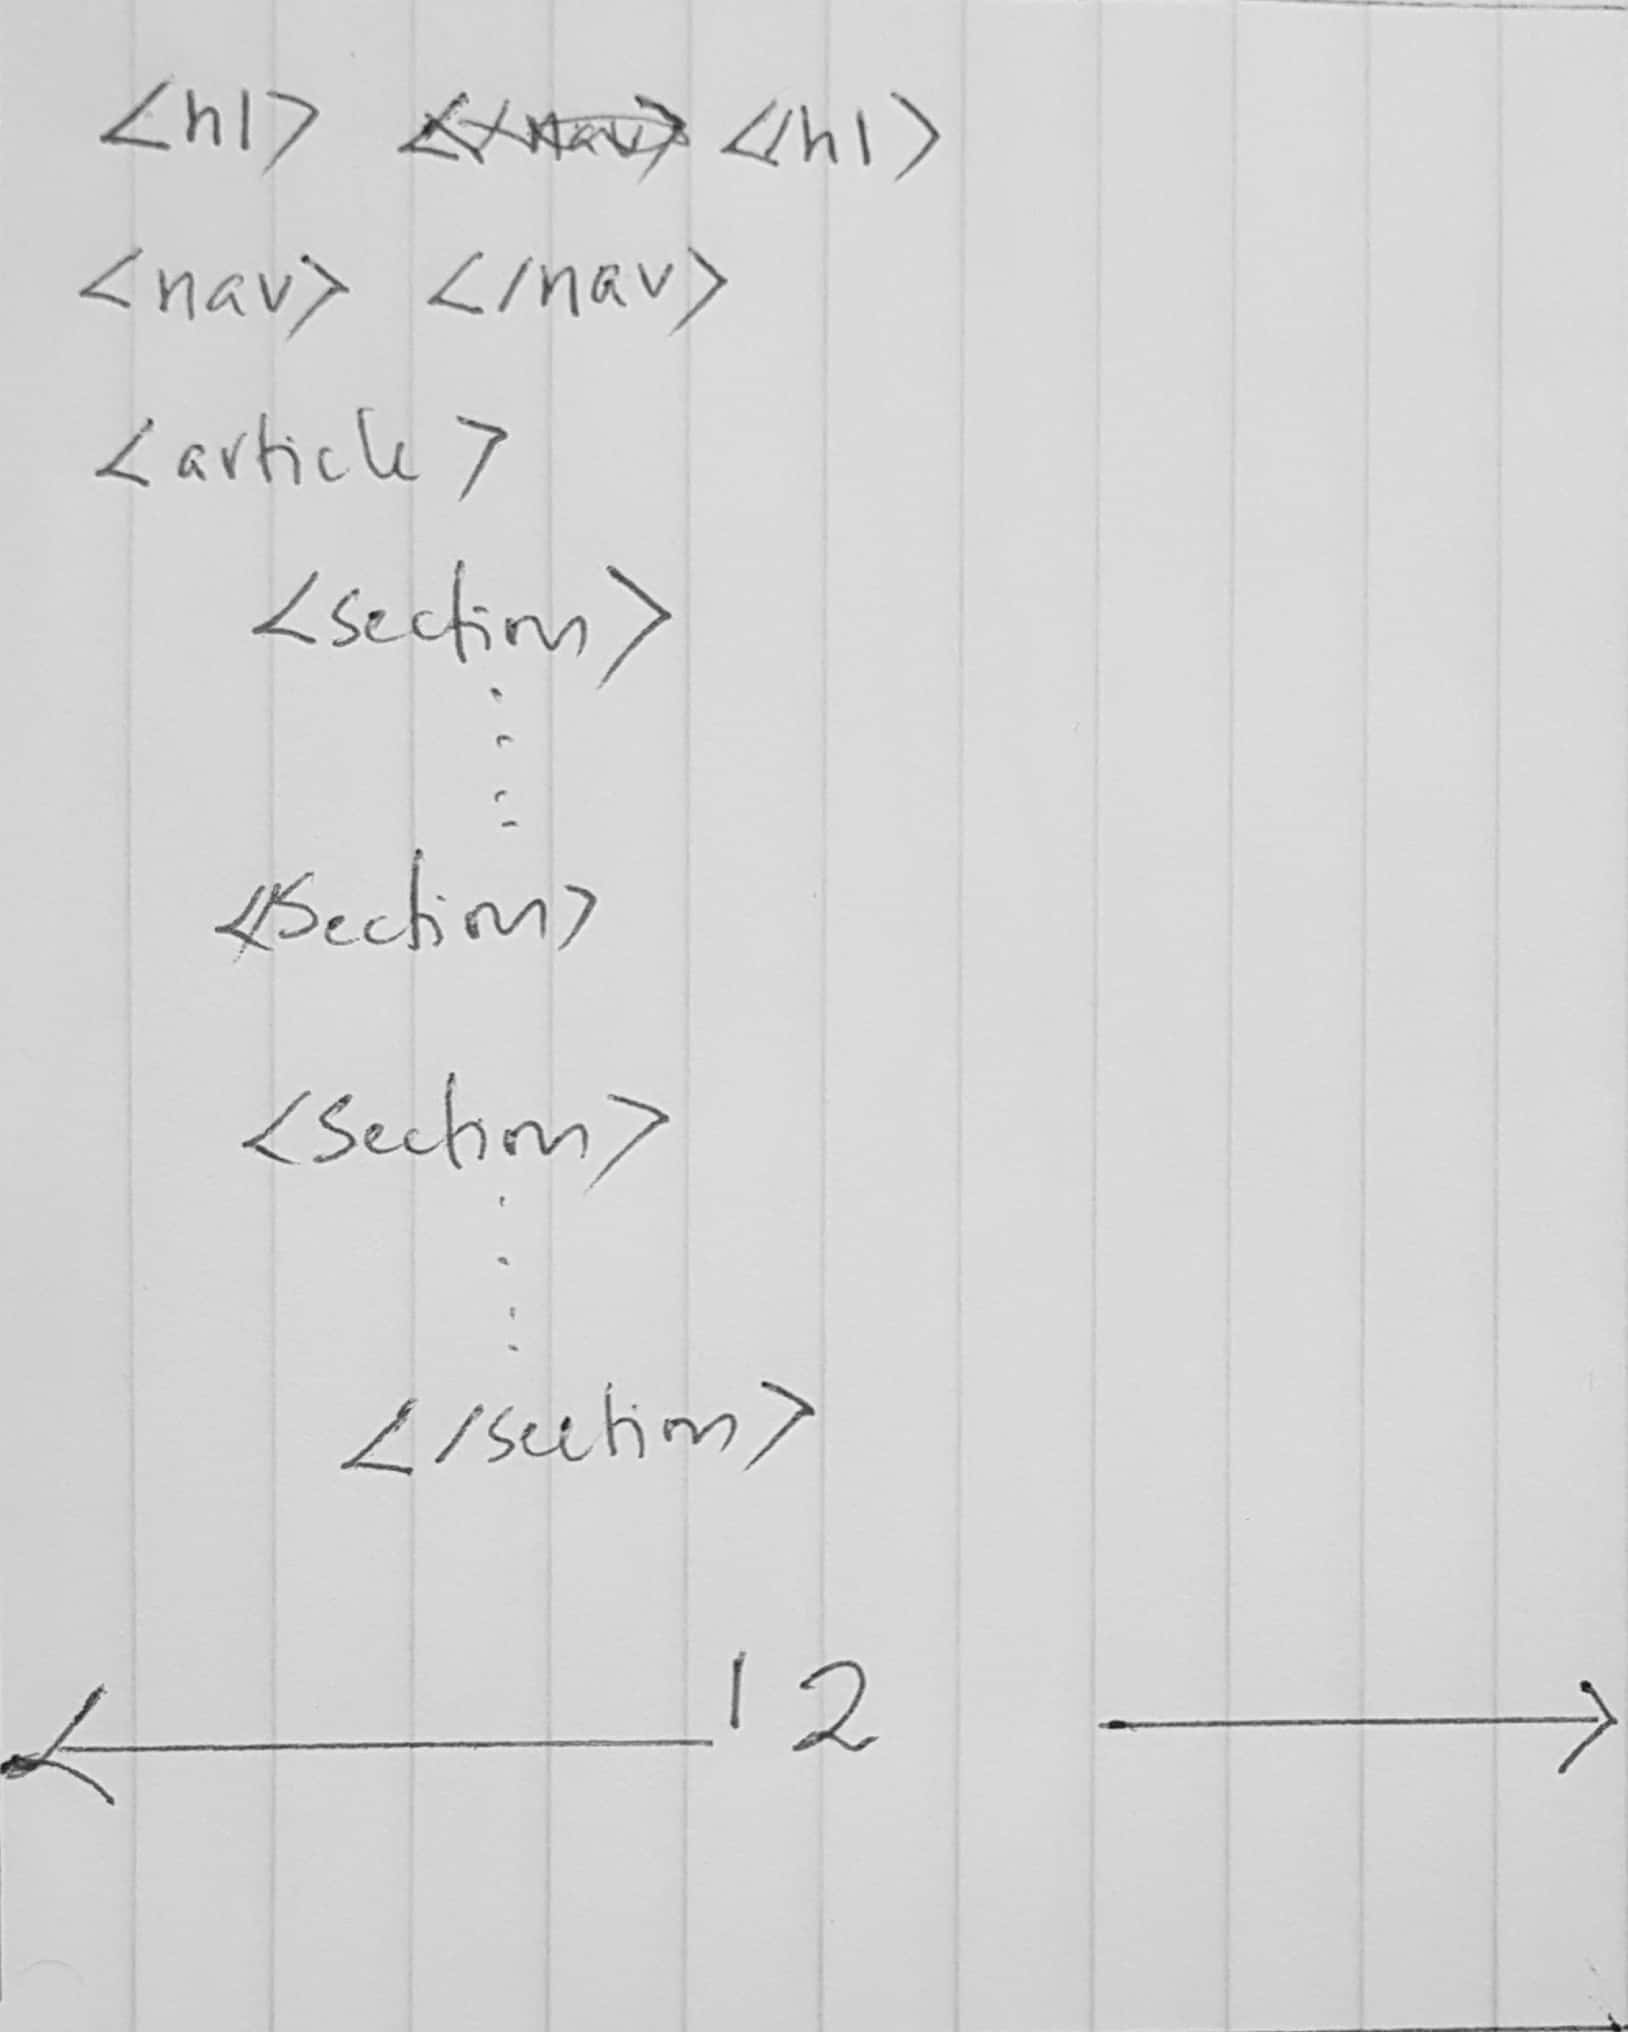 <h1> </nav> </h1>
<nav> </nav>
<article>
<section>
</section>
<section>
</section>
12